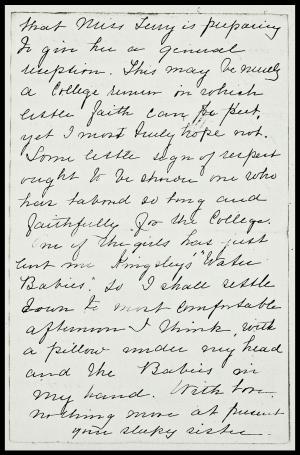 that Miss Terry is preparing
to give her a general
reception. This may be merely
a College rumor in which
little faith can be put,
yet I most truly hope not.
Some little sign of respect
ought to be shown one who
has labored so long and
faithfully for the College.
One of the girls has just
lent me Kingsley's "Water
Babies". So I shall settle
down to most comfortable
afternoon I think, with
a pillow under my head
and the Babies in
my hand. With love.
nothing more at present
your sleepy sister